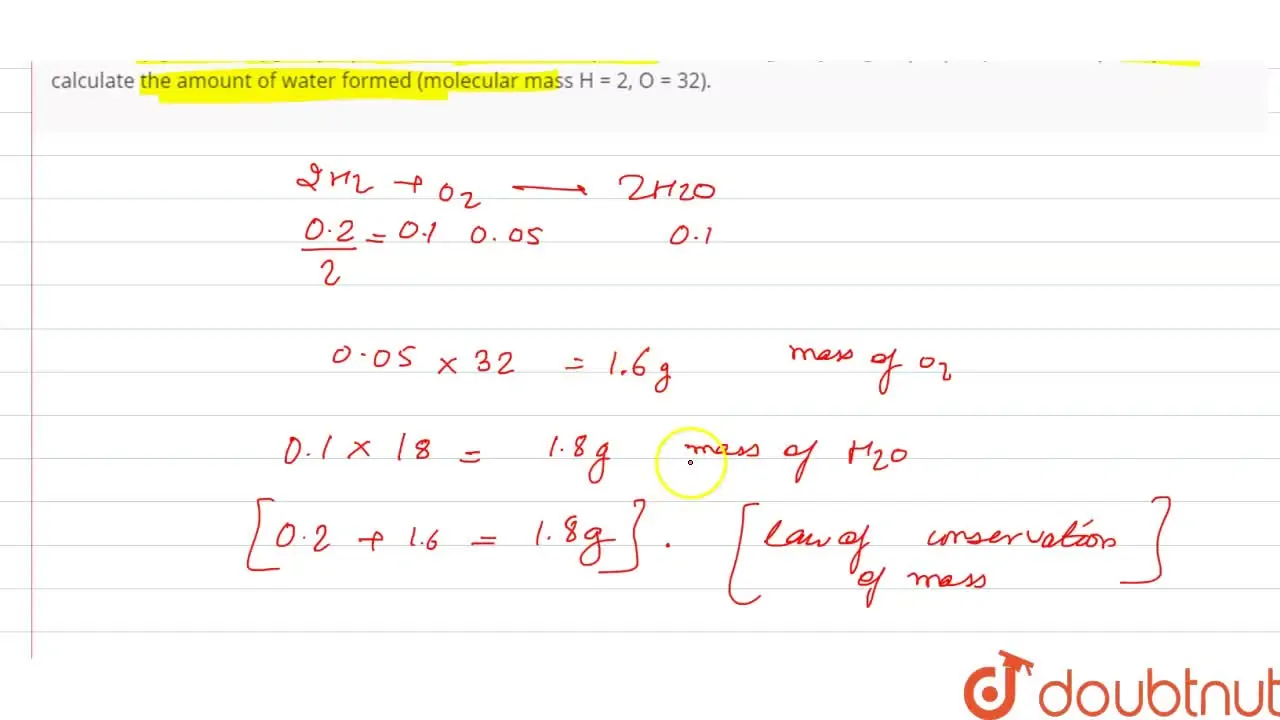 calculate the amount of water formed (molecular mass H = 2, O = 32).
2H2 + O2 → 2H2O
0.2/2 = 0.1 0.05 0.1
0.05 × 32 = 1.6g mass of O2
0.1 × 18 = 1.8g mass of H2O
[0.2 + 1.6 = 1.8g]. [law of conservation
of mass]
doubtnut